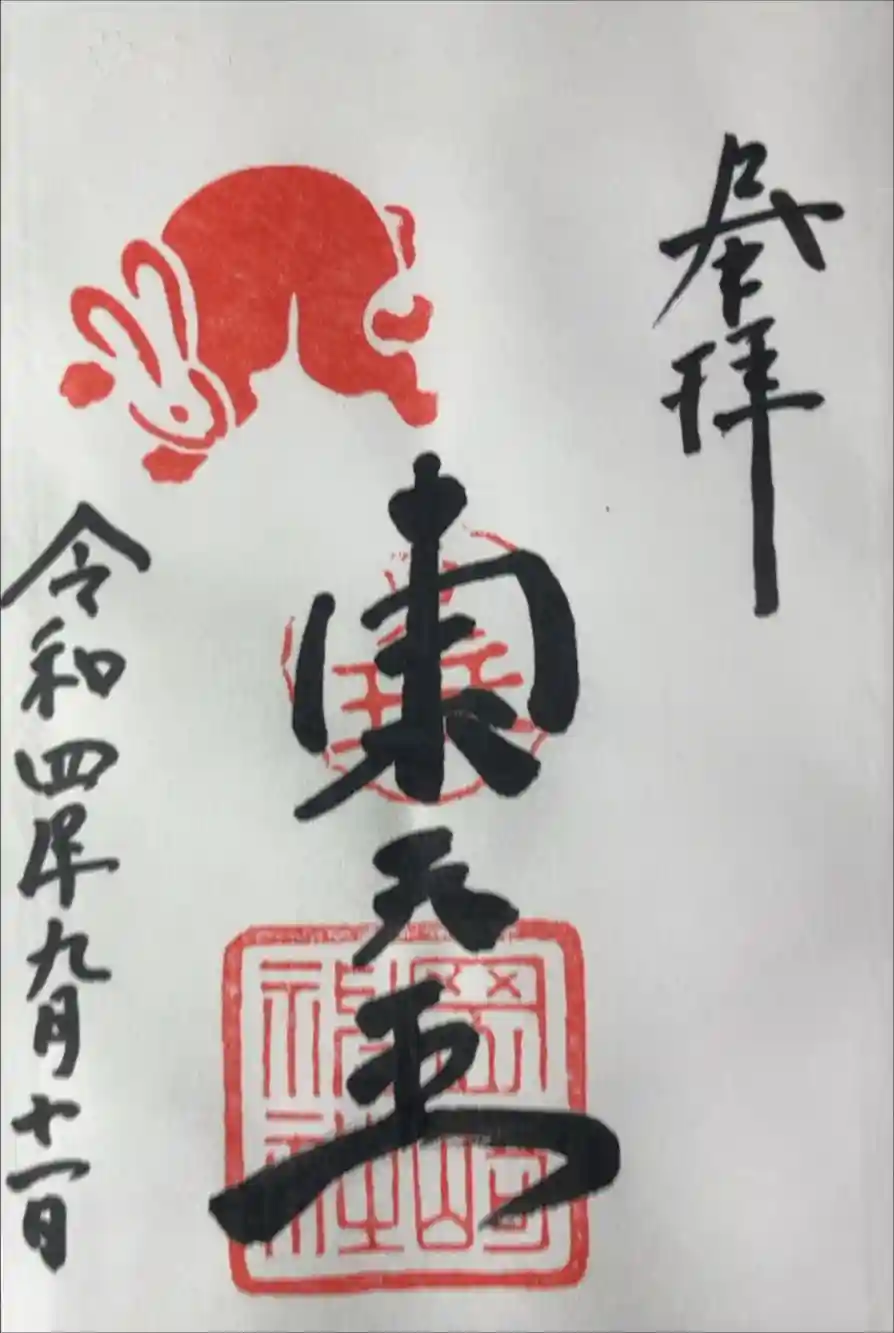 奉拝
東天王
岡崎
神社
令和四年九月十一日